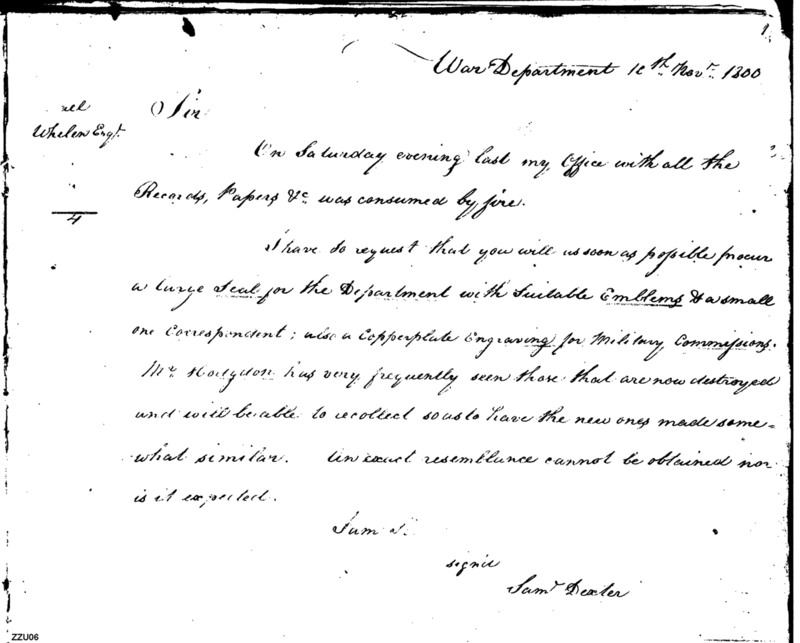 1
War Department 10th Novr. 1800
ael
Whelen Esqr.
4
Sir
On Saturday evening last my Office with all the
Records, Papers &c. was consumed by fire.
I have to request that you will as soon as possible procur
a large Seal for the Department with Suitable Emblems & a small
one Correspondent; also a Copperplate Engraving for Military Commissions.
Mr. Hodgdon has very frequently seen those that are now destroyed
and will be able to recollect so as to have the new ones made some=
what similar. An exact resemblance cannot be obtained nor
is it expected.
I am
signed
Saml. Dexter
ZZU06